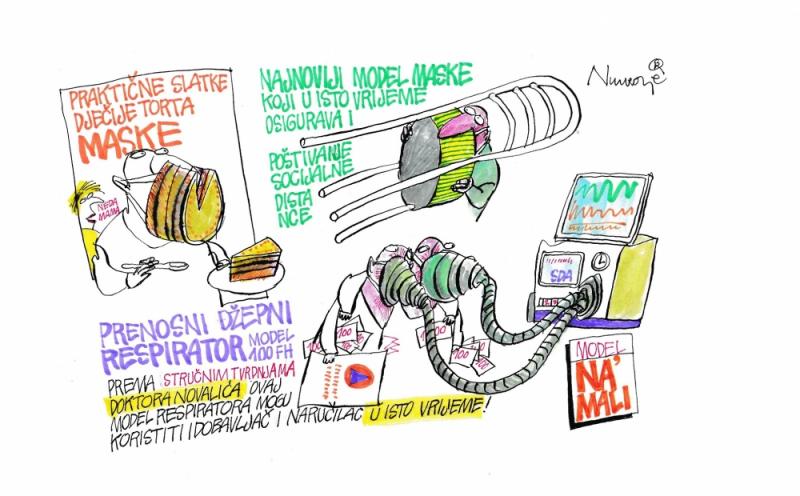 PRAKTIČNE SLATKE
DJEČIJE TORTA
MASKE
NEDA
MAMA
NAJNOVIJI MODEL MASKE
KOJI U ISTO VRIJEME
OSIGURAVA I
POŠTIVANJE
SOCIJALNE
DISTA
NCE
PRENOSNI DŽEPNI
RESPIRATOR MODEL
100 FH
PREMA STRUČNIM TVRDNJAMA
DOKTORA NOVALIĆA OVAJ
MODEL RESPIRATORA MOGU
KORISTITI I DOBAVLJAČ I NARUČILAC U ISTO VRIJEME!
100
100
100
100
SDA
MODEL
NA'
MALI